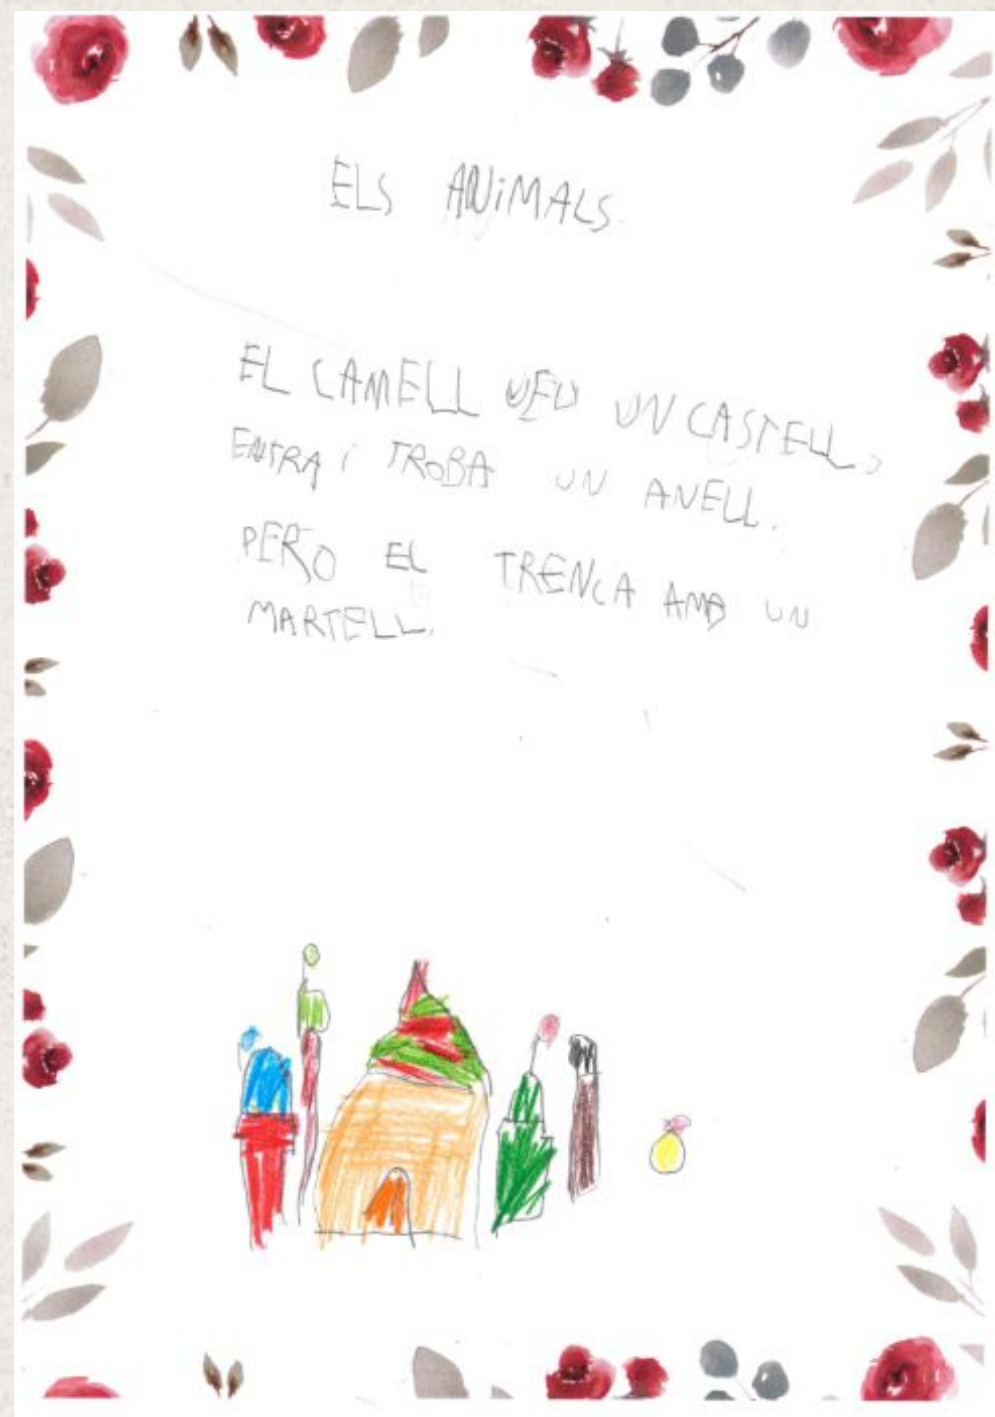 ELS ANiMALS.
EL CAMELL VEU UN CASTELL,
ENTRA i TROBA UN ANELL.
PERO EL TRENCA AMB UN
MARTELL.